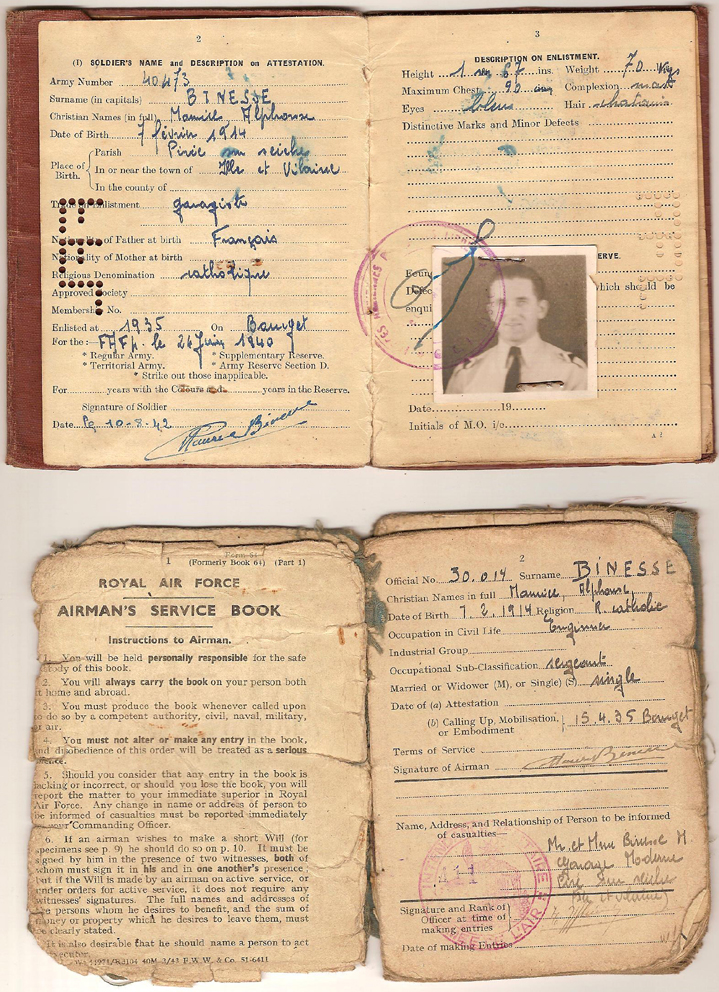 2
(I) SOLDIER'S NAME and DESCRIPTION on ATTESTATION.
Army Number 40473
Surname (in capitals) BINESSE
Christian Names (in full) Maurice, Alphonse
Date of Birth 7 février 1914
Place of Birth.
Parish Piré sur seiche
In or near the town of Ille et Vilaine
In the county of
Trade on Enlistment garagiste
Nationality of Father at birth Français
Nationality of Mother at birth
Religious Denomination catholique
Approved Society
Membership No.
Enlisted at 1935 On Bourget
For the: FAFL le 26 Juin 1940
* Regular Army. * Supplementary Reserve.
* Territorial Army. * Army Reserve Section D.
* Strike out those inapplicable.
For years with the Colours and years in the Reserve.
Signature of Soldier
Date le 10-8-42 Maurice Binesse
3
DESCRIPTION ON ENLISTMENT.
Height 1 m 67 ins. Weight 70 Kgs
Maximum Chest 96 ins Complexion mat
Eyes bleus Hair chatain
Distinctive Marks and Minor Defects
RVE.
Found
Defec which should be
enqui
Date 19
Initials of M.O. i/c
A 2
Form 64
1 (Formerly Book 64) (Part 1)
ROYAL AIR FORCE
AIRMAN'S SERVICE BOOK
Instructions to Airman.
1. You will be held personally responsible for the safe
custody of this book.
2. You will always carry the book on your person both
at home and abroad.
3. You must produce the book whenever called upon
to do so by a competent authority, civil, naval, military,
or air.
4. You must not alter or make any entry in the book,
and disobedience of this order will be treated as a serious
offence.
5. Should you consider that any entry in the book is
lacking or incorrect, or should you lose the book, you will
report the matter to your immediate superior in Royal
Air Force. Any change in name or address of person to
be informed of casualties must be reported immediately
to your Commanding Officer.
6. If an airman wishes to make a short Will (for
specimens see p. 9) he should do so on p. 10. It must be
signed by him in the presence of two witnesses, both of
whom must sign it in his and in one another's presence;
but if the Will is made by an airman on active service, or
under orders for active service, it does not require any
witnesses' signatures. The full names and addresses of
the persons whom he desires to benefit, and the sum of
money or property which he desires to leave them, must
be clearly stated.
It is also desirable that he should name a person to act
executor.
40M-3/43 F.W.W. & Co. 51-6411
2
Official No. 30.014 Surname BINESSE
Christian Names in full Maurice, Alphonse,
Date of Birth 7.2.1914 Religion R. catholic
Occupation in Civil Life Engineer
Industrial Group
Occupational Sub-Classification sergeant
Married or Widower (M), or Single) (S) single
Date of (a) Attestation
(b) Calling Up, Mobilisation, or Embodiment 15.4.35 Bourget
Terms of Service
Signature of Airman Maurice Binesse
Name, Address, and Relationship of Person to be informed
of casualties— Mr. et Mme Binesse M
garage Moderne
Piré sur seiche
Ille et Vilaine
Signature and Rank of
Officer at time of
making entries
Date of making Entries